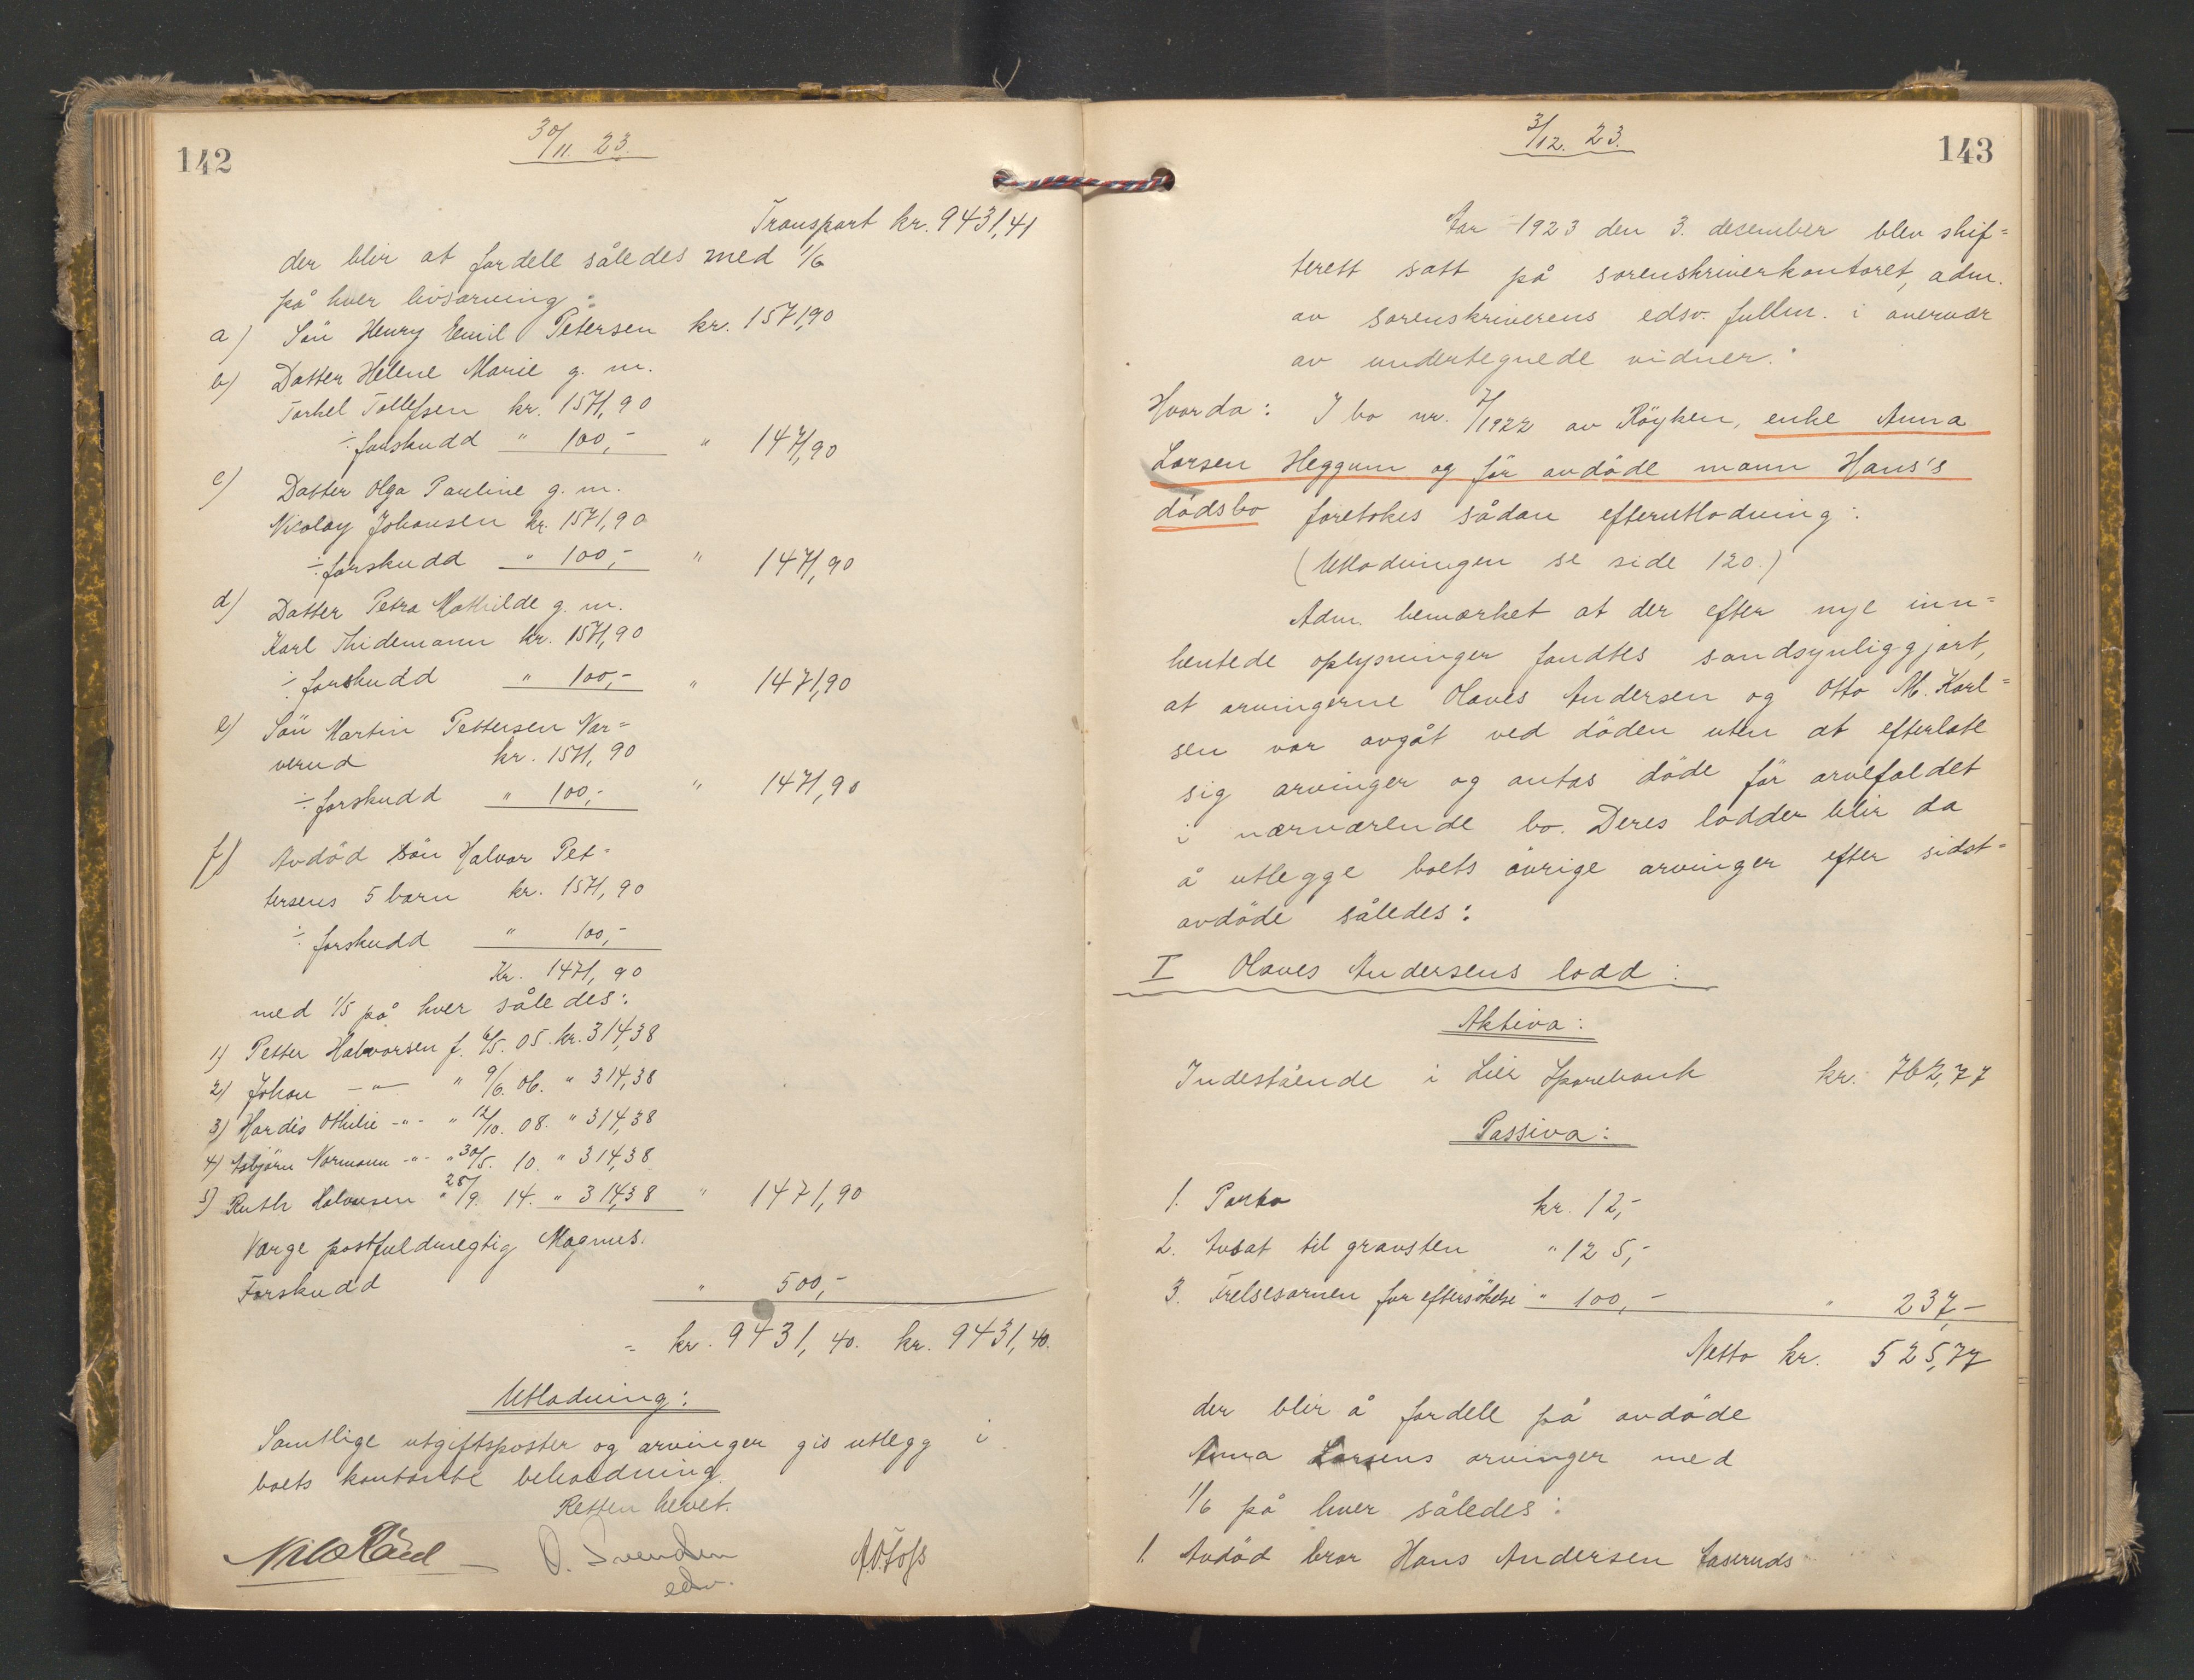 142
30/11. 23.
Transport kr. 9431,41
der blir at fordele således med 1/6
på hver livsarving:
a) Sön Henry Emil Petersen kr. 1571,90
b) Datter Helene Marie g. m.
Torkel Tollefsen kr. 1571,90
÷ forskudd " 100,- " 1471,90
c) Datter Olga Pauline g. m.
Nicolay Johansen kr. 1571,90
÷ forskudd " 100,- " 1471,90
d) Datter Petra Mathilde g. m.
Karl Thidemann kr. 1571,90
÷ forskudd " 100,- " 1471,90
e) Sön Martin Pettersen Var=
verud kr. 1571,90
÷ forskudd " 100,- " 1471,90
f) Avdöd sön Halvor Pet=
tersens 5 barn kr. 1571,90
÷ forskudd " 100,-
Kr. 1471,90
med 1/5 på hver således:
1) Petter Halvorsen f. 6/5. 05. kr. 314,38
2) Johan -"- " 9/6. 06. " 314,38
3) Hardis Othilie -"- " 12/10. 08. " 314,38
4) Asbjörn Normann -"- " 30/5. 10. " 314,38
5) Ruth Halvorsen " 28/9. 14. " 314,38 " 1471,90
Værge postfuldmegtig Magnus.
Forskudd " 500,-
= kr. 9431,40. kr. 9431,40.
Utlodning:
Samtlige utgiftsposter og arvinger gis utlegg i
boets kontante beholdning.
Retten hevet.
O. Svendsen
edsv.
143
3/12. 23.
Aar 1923 den 3. desember blev skif=
terett satt på sorenskriverkontoret, adm.
av sorenskriverens edsv. fullm. i overvær
av undertegnede vidner.
Hvorda: I bo nr. 7/1922 av Röyken, enke Anna
Larsen Heggum og för avdöde mann Hans's
dödsbo foretokes sådan efterutlodning:
(Utlodningen se side 120.)
Adm. bemærket at der efter nye inn=
hentede oplysninger fandtes sandsynliggjort,
at arvingerne Olaves Andersen og Otto M. Karl=
sen var avgåt ved döden uten at efterlate
sig arvinger og antas döde för arvefaldet
i nærværende bo. Deres lodder blir da
å utlegge boets övrige arvinger efter sidst=
avdöde således:
I Olaves Andersens lodd:
Aktiva:
Indestående i Lier Sparebank kr. 762,77
Passiva:
1. Porto kr. 12,-
2. Avsat til gravsten " 125,-
3. Frelsesarmen for eftersökelse " 100,- " 237,-
Netto kr. 525,77
der blir å fordele på avdöde
Anna Larsens arvinger med
1/6 på hver således:
1. Avdöd bror Hans Andersen Aaseruds